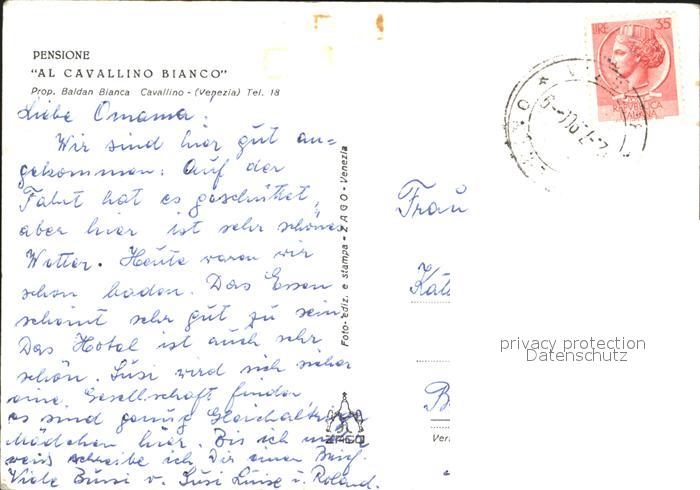 PENSIONE
"AL CAVALLINO BIANCO"
Prop. Baldan Bianca Cavallino - (Venezia) Tel. 18
Liebe Omama.
Wir sind hier gut an=
gekommen. Auf der
Fahrt hat es geschüttet,
aber hier ist sehr schönes
Wetter. Heute waren wir
schon baden. Das Essen
scheint sehr gut zu sein.
Das Hotel ist auch sehr
schön. Susi wird sich sicher
eine Gesellschaft finden,
es sind genug Gleichaltrige
Mädchen hier. Bis ich mehr
weiß schreibe ich Dir einen Brief.
Viele Bussi v. Susi Luise u. Roland.
Foto-ediz. e stampa - ZAGO - Venezia
ZAGO
LIRE 35
REPVBBLICA
ITALIANA
Frau
privacy protection
Datenschutz
B